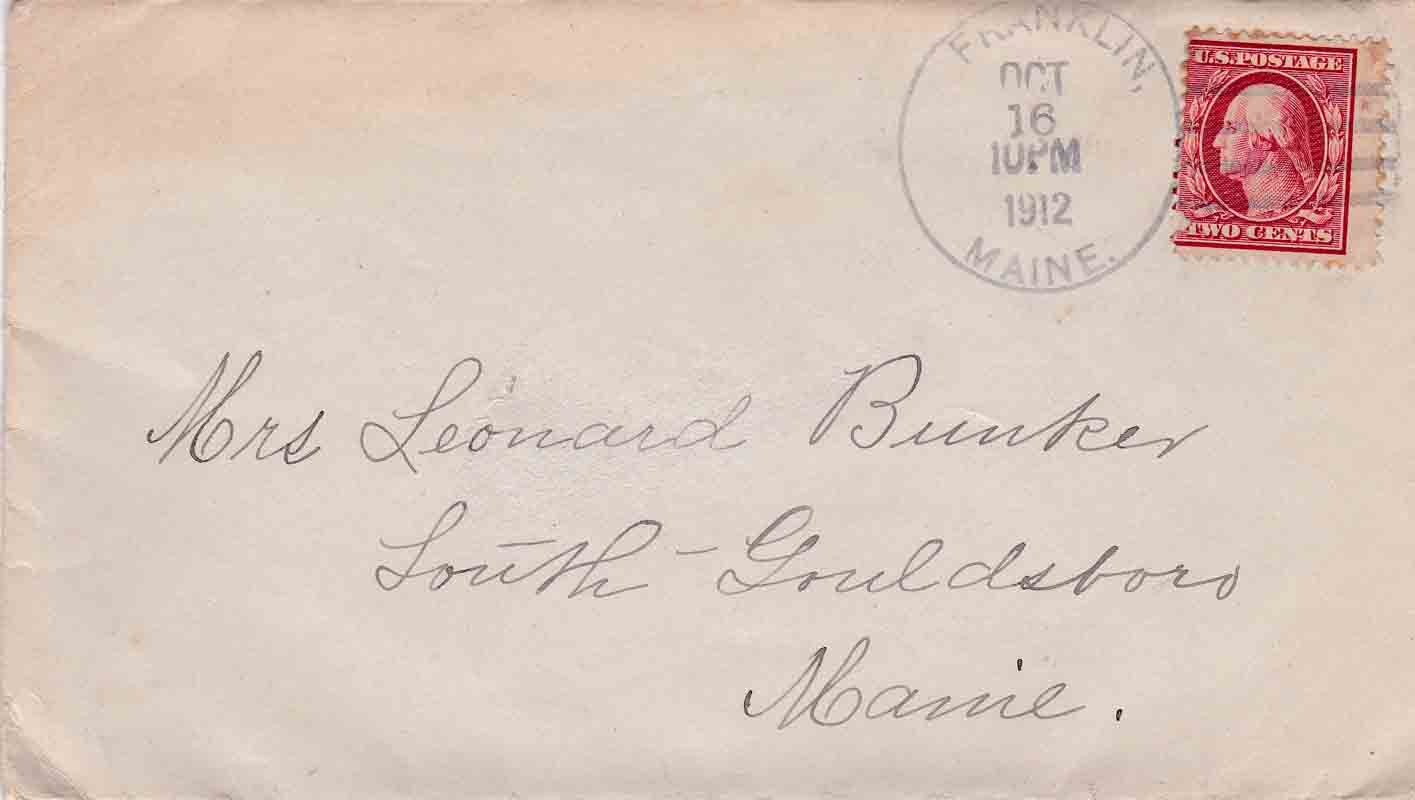 FRANKLIN,
OCT
16
10PM
1912
MAINE.
U.S. POSTAGE
TWO CENTS
Mrs Leonard Bunker
South-Gouldsboro
Maine.